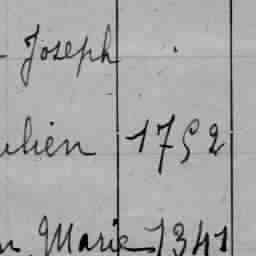 Joseph
ulien 1752
n Marie 1341